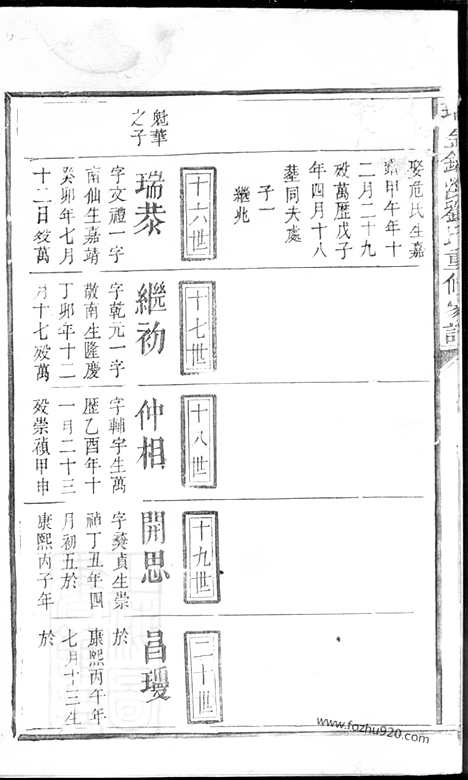 娶危氏生嘉
靖甲午年十
二月二十九
歿萬歷戊子
年四月十八
塟同夫處
子一
繼兆
十六世
魁華
之子
瑞恭
字文禮一字
南仙生嘉靖
癸卯年七月
十二日歿萬
十七世
繼初
字乾元一字
敬南生隆慶
丁卯年十二
月十七歿萬
十八世
仲相
字輔宇生萬
歷乙酉年十
一月二十三
歿崇禎甲申
十九世
開思
字彛貞生崇
禎丁丑年四
月初五於
康熙丙子年
二十世
昌瓊
於
康熙丙午年
七月十三生
於
www.fozhu920.com